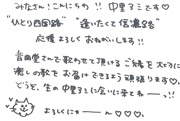 みなさん!こんにちわ!! 中里ヌミです♡
"ひとり四国路" "逢いたくて信濃路"
応援よろしくおねがいします!!
音間堂さんで歌わせて頂けるご縁を大切に
癒しの歌をお届けできるよう頑張ります♡。
どうぞ、生の中里ミに会いに来てねー っ!!
よろしくにゃーーん♡♡♡。